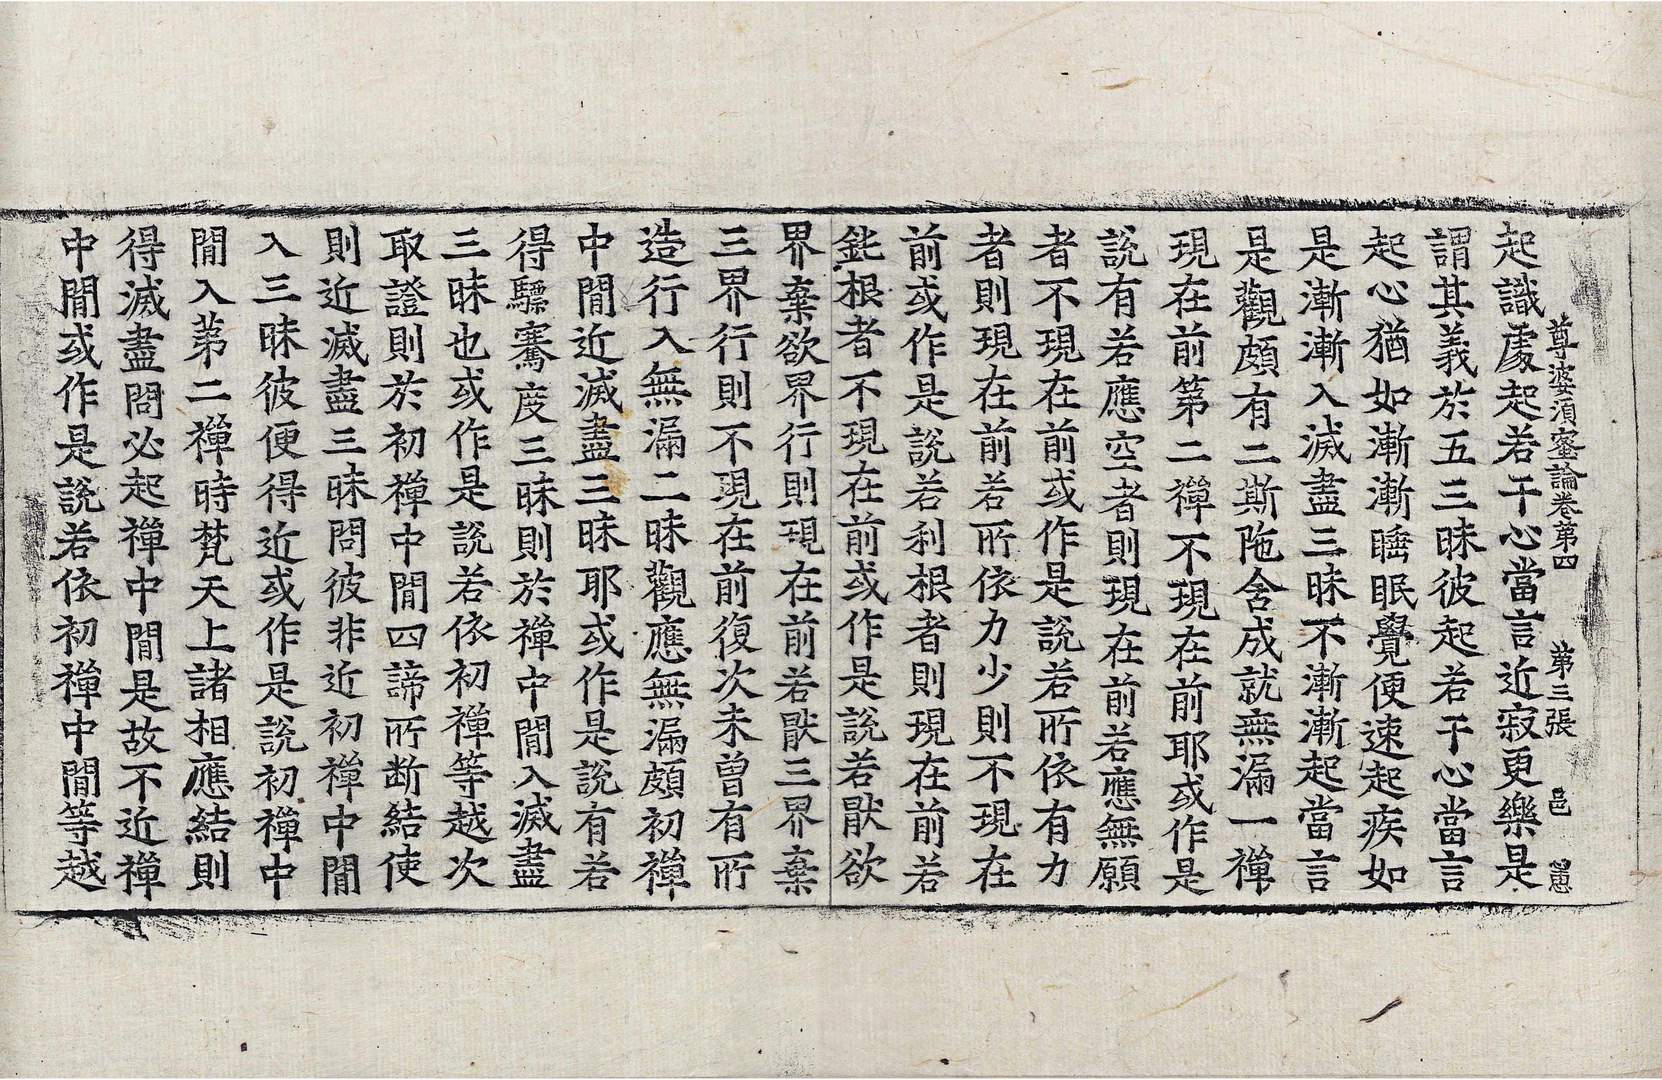 尊婆須蜜論卷第四 第三張 邑
起識處起若干心當言近寂更樂是
謂其義於五三昧彼起若干心當言
起心猶如漸漸睡眠覺便速起疾如
是漸漸入滅盡三昧不漸漸起當言
是觀頗有二斯陁含成就無漏一禪
現在前第二禪不現在前耶或作是
說有若應空者則現在前若應無願
者不現在前或作是說若所依有力
者則現在前若所依力少則不現在
前或作是說若利根者則現在前若
鈍根者不現在前或作是說若猒欲
界棄欲界行則現在前若猒三界棄
三界行則不現在前復次未曾有所
造行入無漏二昧觀應無漏頗初禪
中間近滅盡三昧耶或作是說有若
得驃騫度三昧則於禪中間入滅盡
三昧也或作是說若依初禪等越次
取證則於初禪中間四諦所斷結使
則近滅盡三昧問彼非近初禪中間
入三昧彼便得近或作是說初禪中
間入第二禪時梵天上諸相應結則
得滅盡問必起禪中間是故不近禪
中間或作是說若依初禪中間等越